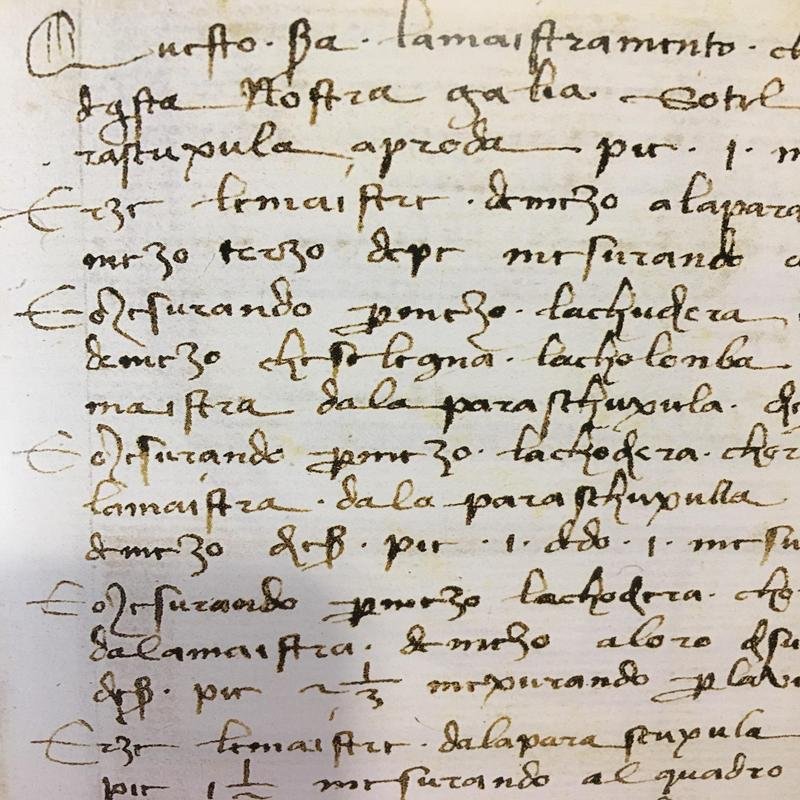 Questo · sia · lamaistramento · ch
dqsta Nostra galia · Sotil
rascuxula aproda pie · 1 · m
Erze lemaistre · demezo alapara
mezo terzo depe mesurando a
E Mesurando p mezo · lachudera
demezo chese legna · lacholonba
maistra dala paraschuxula · de
E Mesurando p mezo · lachodera · cher
lamaistra · dala paraschuxulla
demezo deß · pie · 1 · dedo · 1 · mesu
E Mesurando p mezo lachodera · che
dalamaistra · demeho aloro dsu
deß · pie 2 1/3 mexurando p lavi
Erze lemaistre · dalapara scuxula
pie 1 1/2 mesurando al quadro